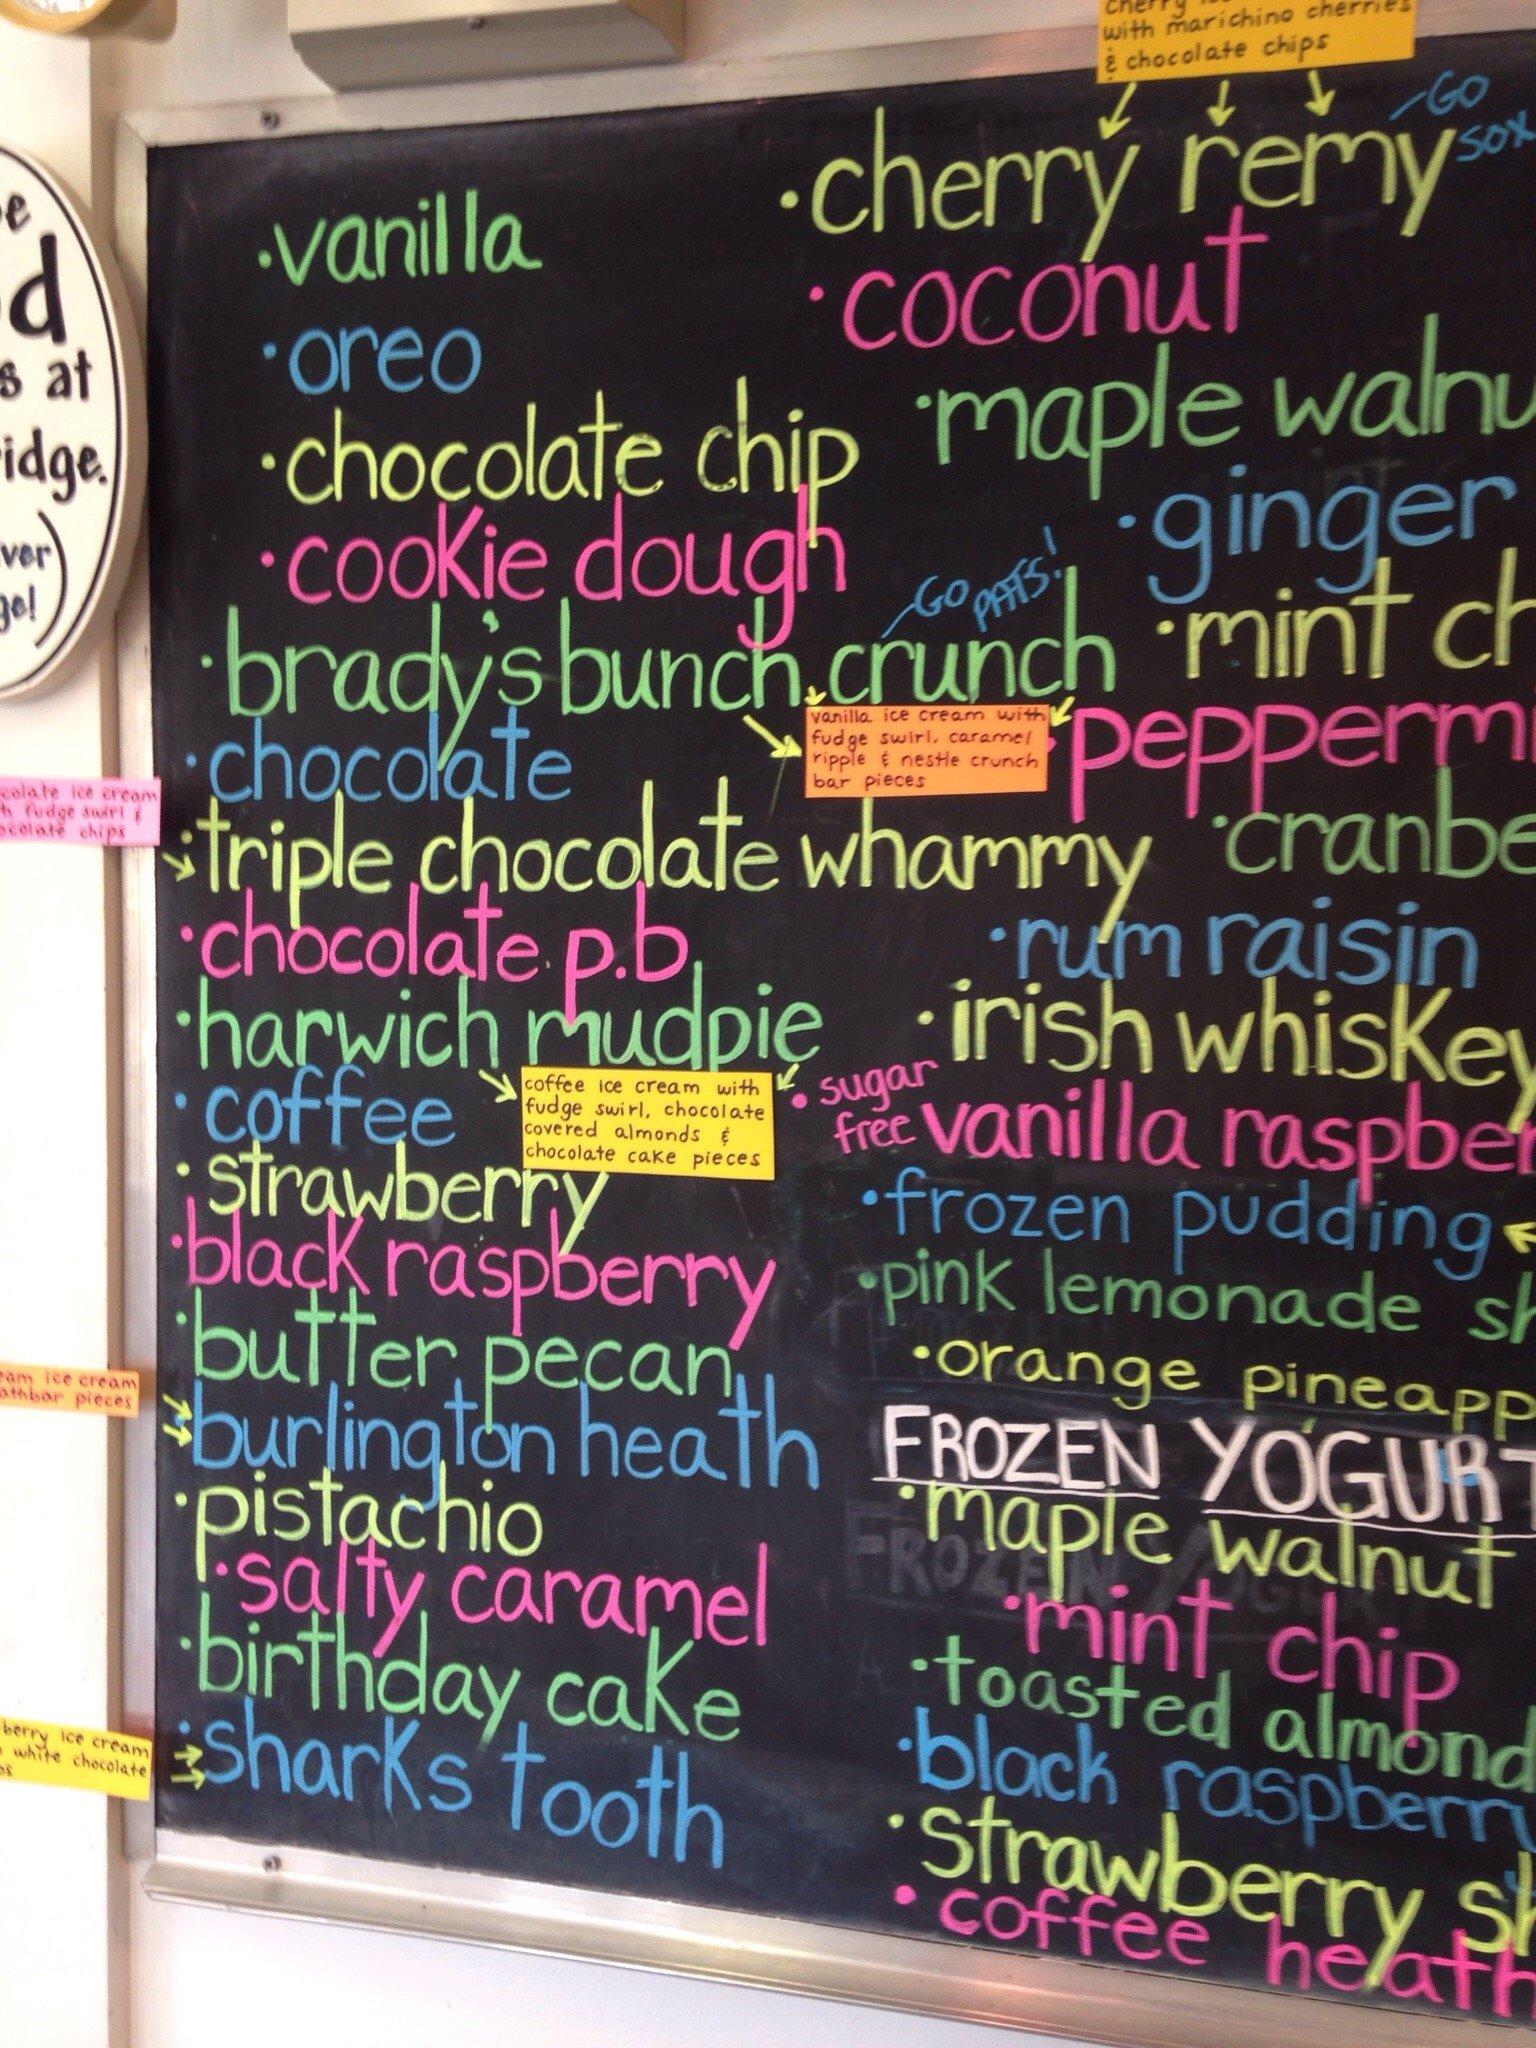 s at
idge.
cherry
with marichino cherries
& chocolate chips
GO
SOX
·vanilla
·oreo
·chocolate chip
·cookie dough
·brady's bunch crunch
GO
PATS!
vanilla ice cream with
fudge swirl, caramel
ripple & nestle crunch
bar pieces
·chocolate
·triple chocolate whammy
colate ice cream
h fudge swirl &
ocolate chips
·chocolate p.b
·harwich mudpie
coffee ice cream with
fudge swirl, chocolate
covered almonds &
chocolate cake pieces
·coffee
·strawberry
·black raspberry
·butter pecan
·burlington heath
eam ice cream
athbar pieces
·pistachio
·salty caramel
·birthday cake
·sharks tooth
berry ice cream
white chocolate
·cherry remy
·coconut
·maple walnu
·ginger
·mint ch
·peppermi
·cranbe
·rum raisin
·irish whiskey
·sugar
free vanilla raspber
·frozen pudding
·pink lemonade sh
·orange pineapp
FROZEN YOGURT
·maple walnut
·mint chip
·toasted almond
·black raspberry
·strawberry
·coffee heath